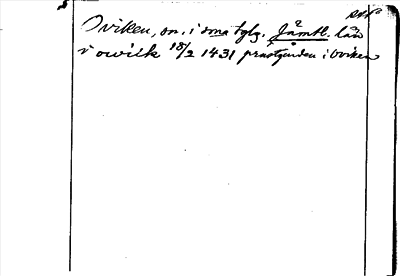 Oviken, sn. i sma tglg. Jämtl. län
i owilk 18/2 1431 prästgården i Oviken